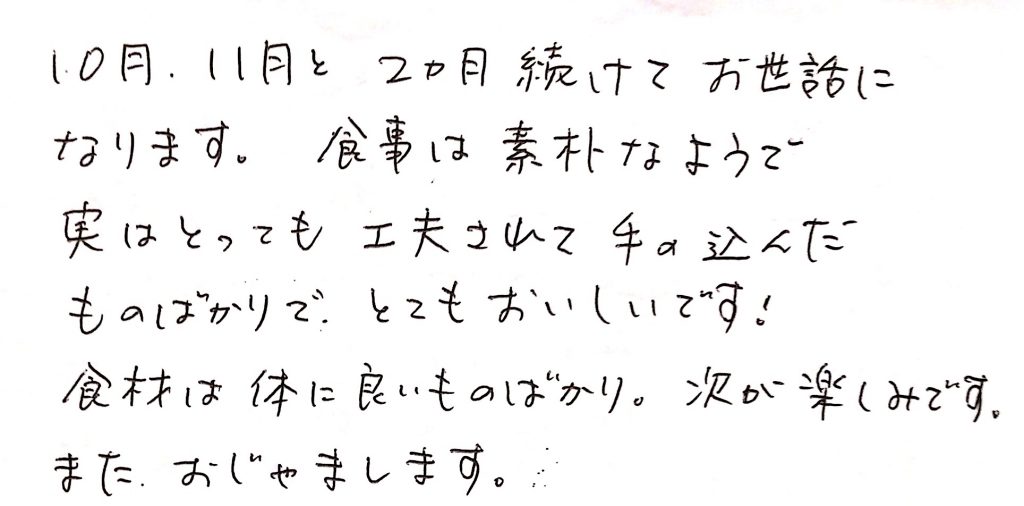 10月、11月と 2ヵ月 続けて お世話に
なります。 食事は 素朴なようで
実はとっても 工夫されて 手の込んだ
ものばかりで、とてもおいしいです!
食材は 体に良いものばかり。 次が楽しみです。
また、おじゃまします。